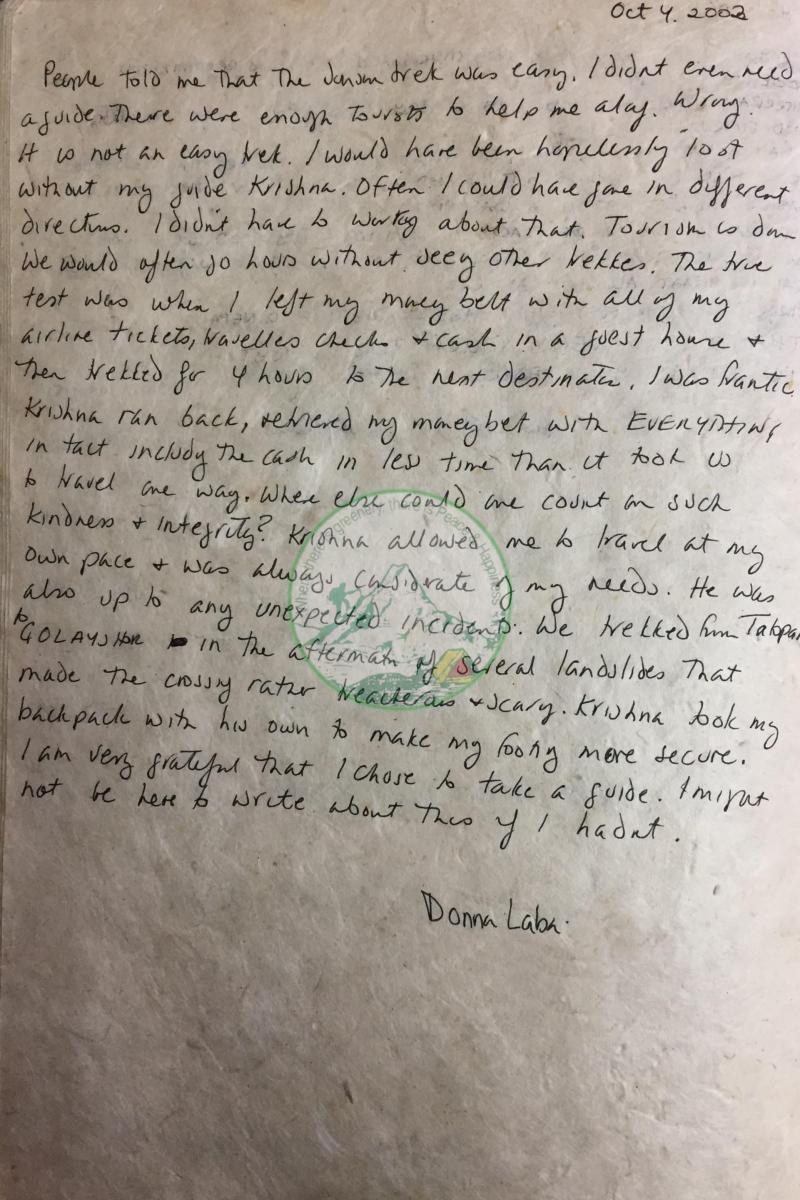 Oct 4, 2002
People told me that the Jomsom trek was easy. I didnt even need
a guide. There were enough tourists to help me along. Wrong.
It is not an easy trek. I would have been hopelessly lost
without my guide Krishna. Often I could have gone in different
directions. I didn't have to worry about that. Tourism is down
We would often go hours without seeing other trekkers. The true
test was when I left my money belt with all of my
airline tickets, travellers checks + cash in a guest house +
then trekked for 4 hours to the next destination. I was frantic
Krishna ran back, retrieved my moneybelt with EVERYTHING
in tact including the cash in less time than it took us
to travel one way. Where else could one count on such
kindness + integrity? Krishna allowed me to travel at my
own pace + was always considerate of my needs. He was
also up to any unexpected incidents. We trekked from Tatopani
to GOLAYSHOR in the aftermath of several landslides that
made the crossing rather treacherous + scary. Krishna took my
backpack with his own to make my footing more secure.
I am very grateful that I chose to take a guide. I might
not be here to write about this if I hadnt.
Donna Laba.